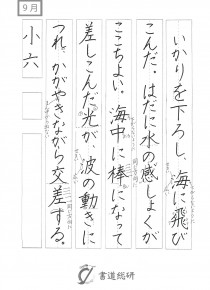 9月
いかりを下ろし、海に飛び
こんだ。はだに水の感しょくが
ここちよい。海中に棒になって
差しこんだ光が、波の動きに
つれ、かがやきながら交差する。
小六
書道総研